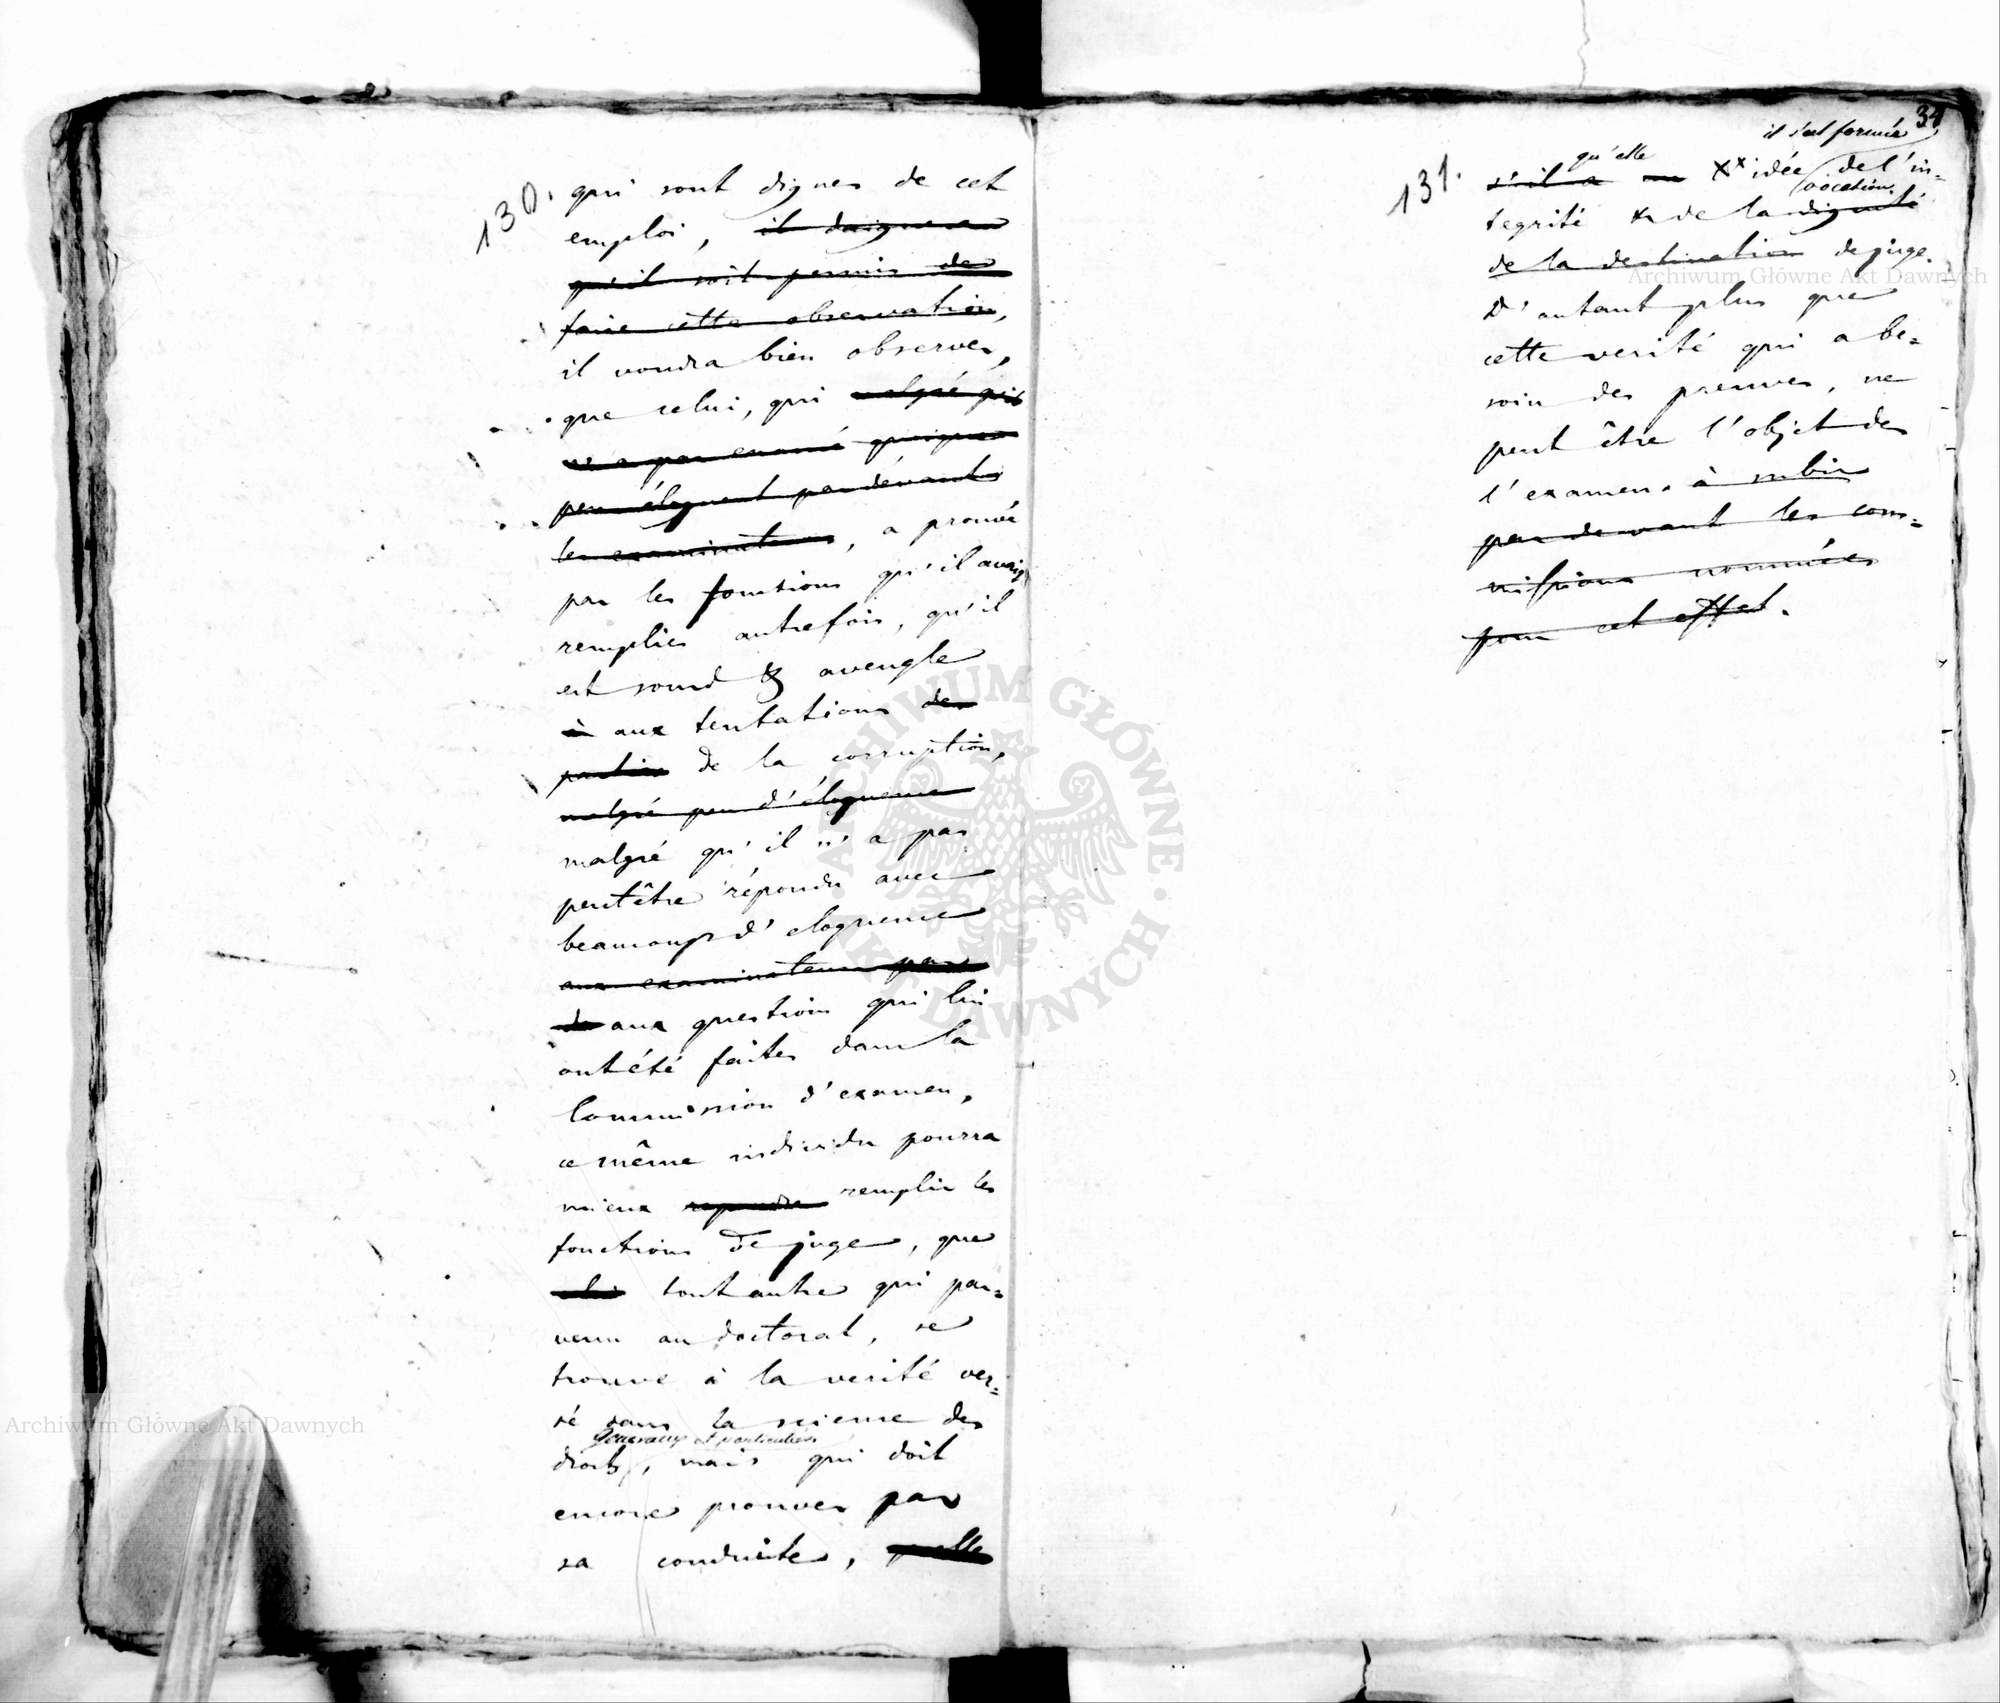 130.
qui sont dignes de cet
emploi, il daignera
qu'il soit permis de
faire cette observation,
il voudra bien observer,
que celui, qui malgré qu'il
peu éloquent par devant
les examinateurs, a prouvé
par les fonctions qu'il avoit
remplies autrefois, qu'il
est sourd & aveugle
à aux tentations des
parties de la corruption,
malgré peu d'éloquence
malgré qu'il n'a pas
peutêtre répondu avec
beaucoup d'eloquence
aux examinateurs par
de aux questions qui lui
ont été faites dans la
Commission d'examen,
ce même individu pourra
mieux repondre remplir les
fonctions de juge, que
celui tout autre qui par=
venu au doctorat, se
trouve à la verité ver=
sé dans la science des
generaux et particuliers
droits, mais qui doit
encore prouver par
sa conduite, quelle
34
131.
il s'est formée
qu'elle
s'il a une xx idée de l'in=
vocation
tegrité & de la dignité
de la destination de juge.
D'autant plus que
cette verité qui a be=
soin des preuves, ne
peut être l'objet de
l'examen. à subir
par devant les com=
missions nommées
pour cet effet.
Archiwum Główne Akt Dawnych
Archiwum Główne Akt Dawnych
ARCHIWUM GŁÓWNE AKT DAWNYCH